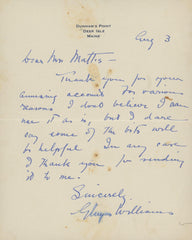 DUNHAM'S POINT
DEER ISLE
MAINE
Aug 3
Dear Mrs Mattis –
Thank you for your
amusing account. For various
reasons I don't believe I can
use it as is, but I dare
say some of the bits will
be helpful. In any case
I thank you for sending
it to me.
Sincerely,
Williams